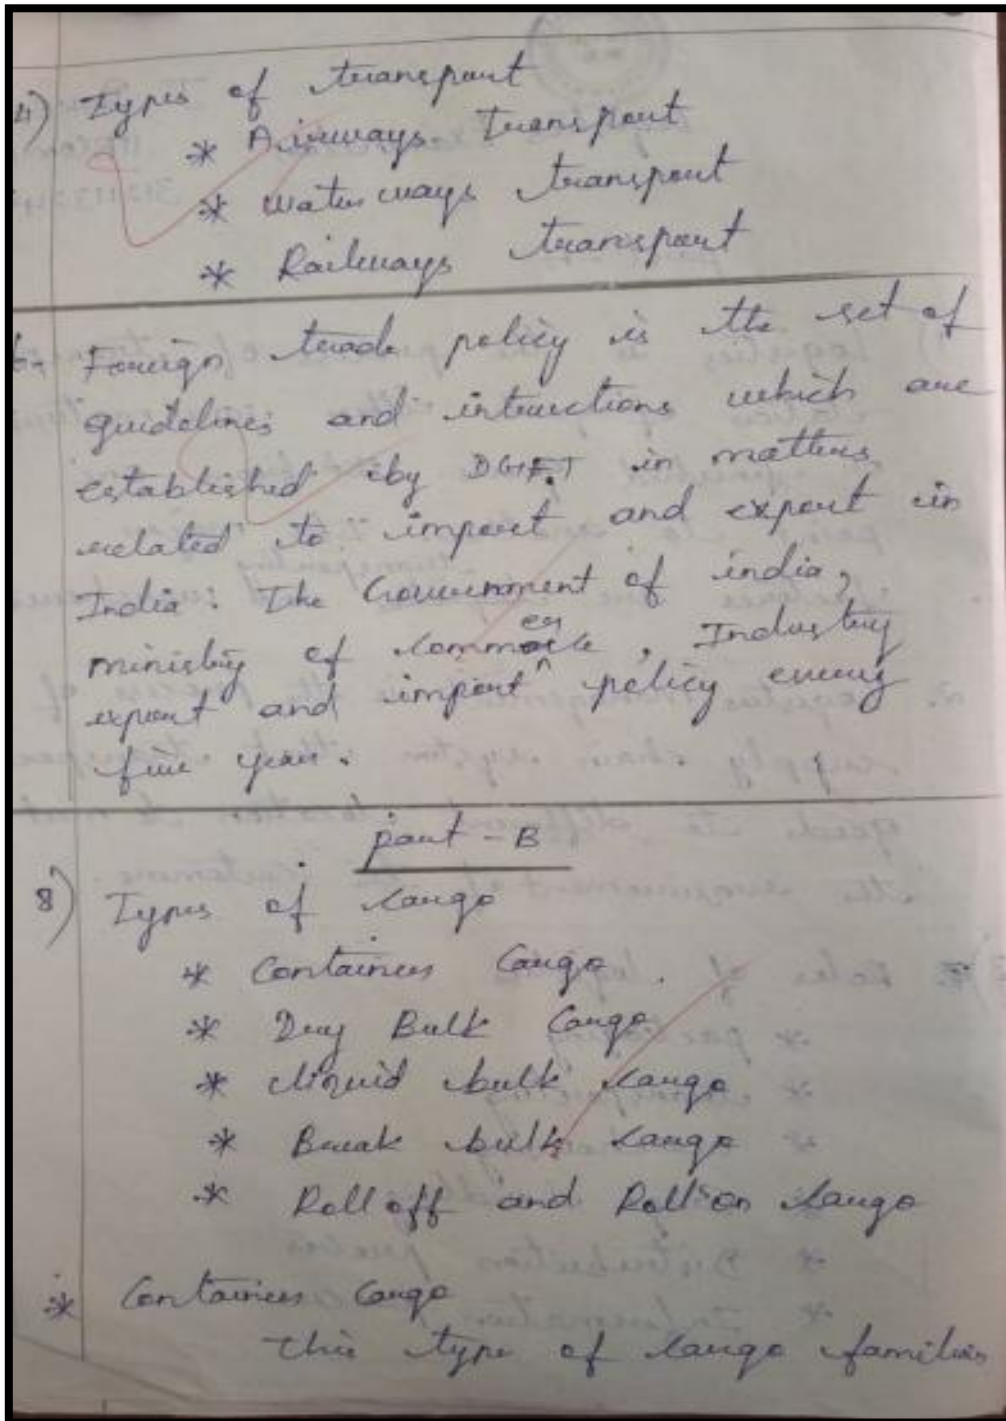 4) Types of transport
* Airways Transport
* Water ways transport
* Railways transport
Foreign trade policy is the set of
guidelines and intructions which are
established by DGFT in matters
related to import and export in
India. The Government of india,
ministry of commerce, Industry
export and import policy every
five year.
part - B
8) Types of cargo
* Containers Cargo.
* Dry Bulk Cargo
* liquid bulk cargo
* Break bulk cargo
* Roll off and Roll on cargo
* Containers Cargo
this type of cargo families